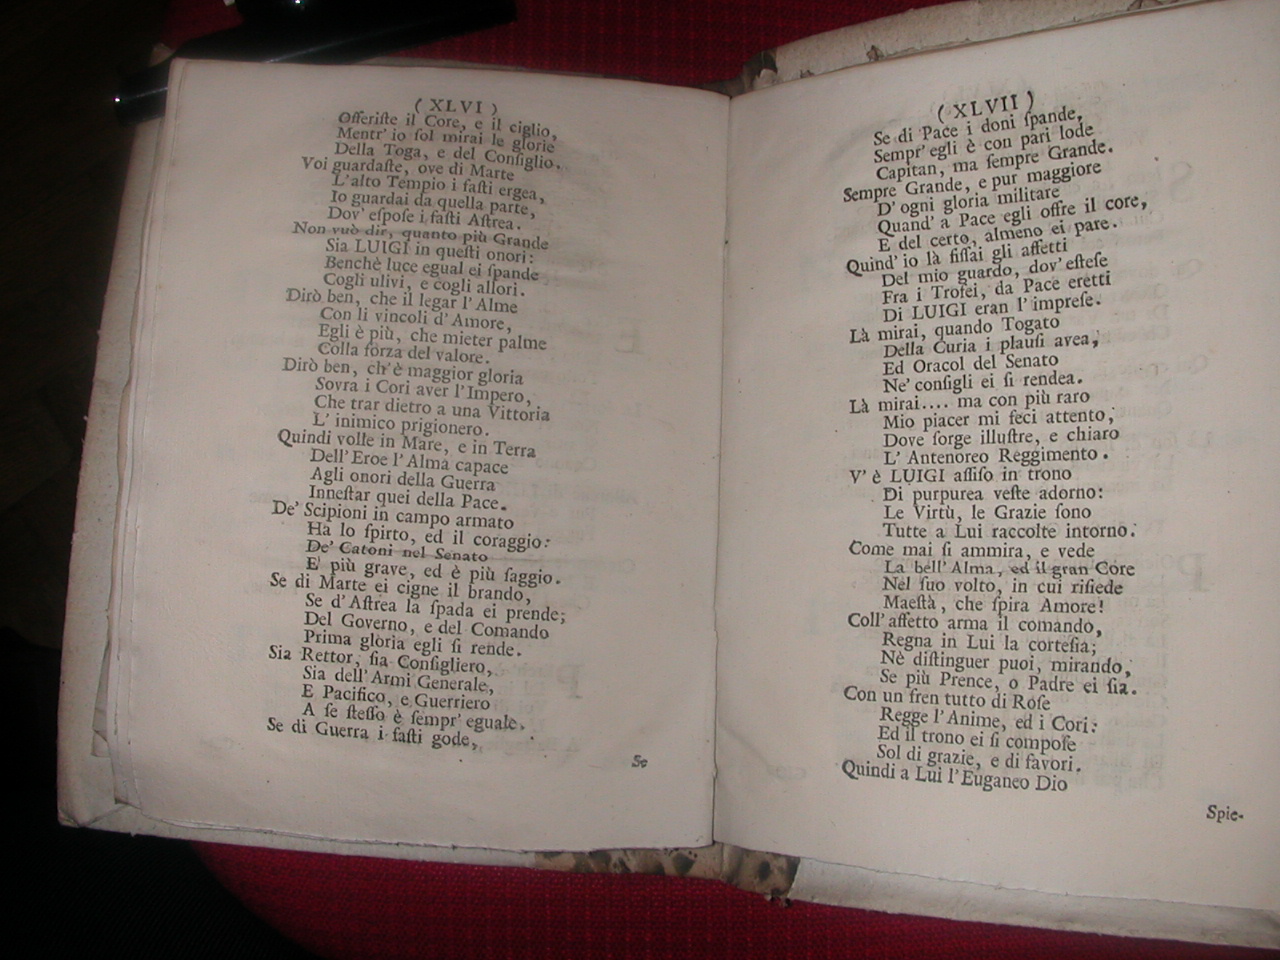 ( XLVI )
Offeriſte il Core, e il ciglio,
Mentr' io ſol mirai le glorie
Della Toga, e del Conſiglio.
Voi guardaſte, ove di Marte
L'alto Tempio i faſti ergea,
Io guardai da quella parte,
Dov' eſpoſe i faſti Aſtrea.
Non vuò dir, quanto più Grande
Sia LUIGI in queſti onori:
Benchè luce egual ei ſpande
Cogli ulivi, e cogli allori.
Dirò ben, che il legar l' Alme
Con li vincoli d' Amore,
Egli è più, che mieter palme
Colla forza del valore.
Dirò ben, ch'è maggior gloria
Sovra i Cori aver l'Impero,
Che trar dietro a una Vittoria
L' inimico prigionero.
Quindi volle in Mare, e in Terra
Dell'Eroe l' Alma capace
Agli onori della Guerra
Inneſtar quei della Pace.
De' Scipioni in campo armato
Ha lo ſpirto, ed il coraggio:
De' Catoni nel Senato
E' più grave, ed è più ſaggio.
Se di Marte ei cigne il brando,
Se d'Aſtrea la ſpada ei prende;
Del Governo, e del Comando
Prima gloria egli ſi rende.
Sia Rettor, ſia Conſigliero,
Sia dell'Armi Generale,
E Pacifico, e Guerriero
A ſe ſteſſo è ſempr' eguale.
Se di Guerra i faſti gode,
Se
( XLVII )
Se di Pace i doni ſpande,
Sempr' egli è con pari lode
Capitan, ma ſempre Grande.
Sempre Grande, e pur maggiore
D' ogni gloria militare
Quand' a Pace egli offre il core,
E del certo, almeno ei pare.
Quind' io là fiſſai gli affetti
Del mio guardo, dov' eſteſe
Fra i Trofei, da Pace eretti
Di LUIGI eran l' impreſe.
Là mirai, quando Togato
Della Curia i plauſi avea,
Ed Oracol del Senato
Ne' conſigli ei ſi rendea.
Là mirai.... ma con più raro
Mio piacer mi feci attento,
Dove ſorge illuſtre, e chiaro
L' Antenoreo Reggimento.
V' è LUIGI aſſiſo in trono
Di purpurea veſte adorno:
Le Virtù, le Grazie ſono
Tutte a Lui raccolte intorno.
Come mai ſi ammira, e vede
La bell' Alma, ed il gran Core
Nel ſuo volto, in cui riſiede
Maeſtà, che ſpira Amore!
Coll' affetto arma il comando,
Regna in Lui la corteſia;
Nè diſtinguer puoi, mirando,
Se più Prence, o Padre ei ſia.
Con un fren tutto di Roſe
Regge l' Anime, ed i Cori:
Ed il trono ei ſi compoſe
Sol di grazie, e di favori.
Quindi a Lui l'Euganeo Dio
Spie-